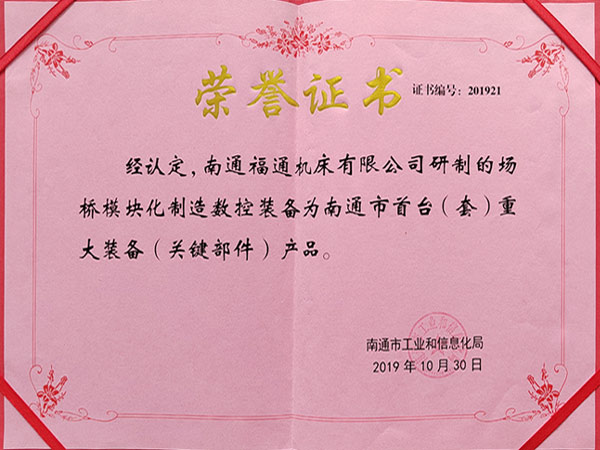 荣誉证书 证书编号：201921
经认定，南通福通机床有限公司研制的场
桥模块化制造数控装备为南通市首台（套）重
大装备（关键部件）产品。
南通市工业和信息化局
2019 年 10 月 30 日